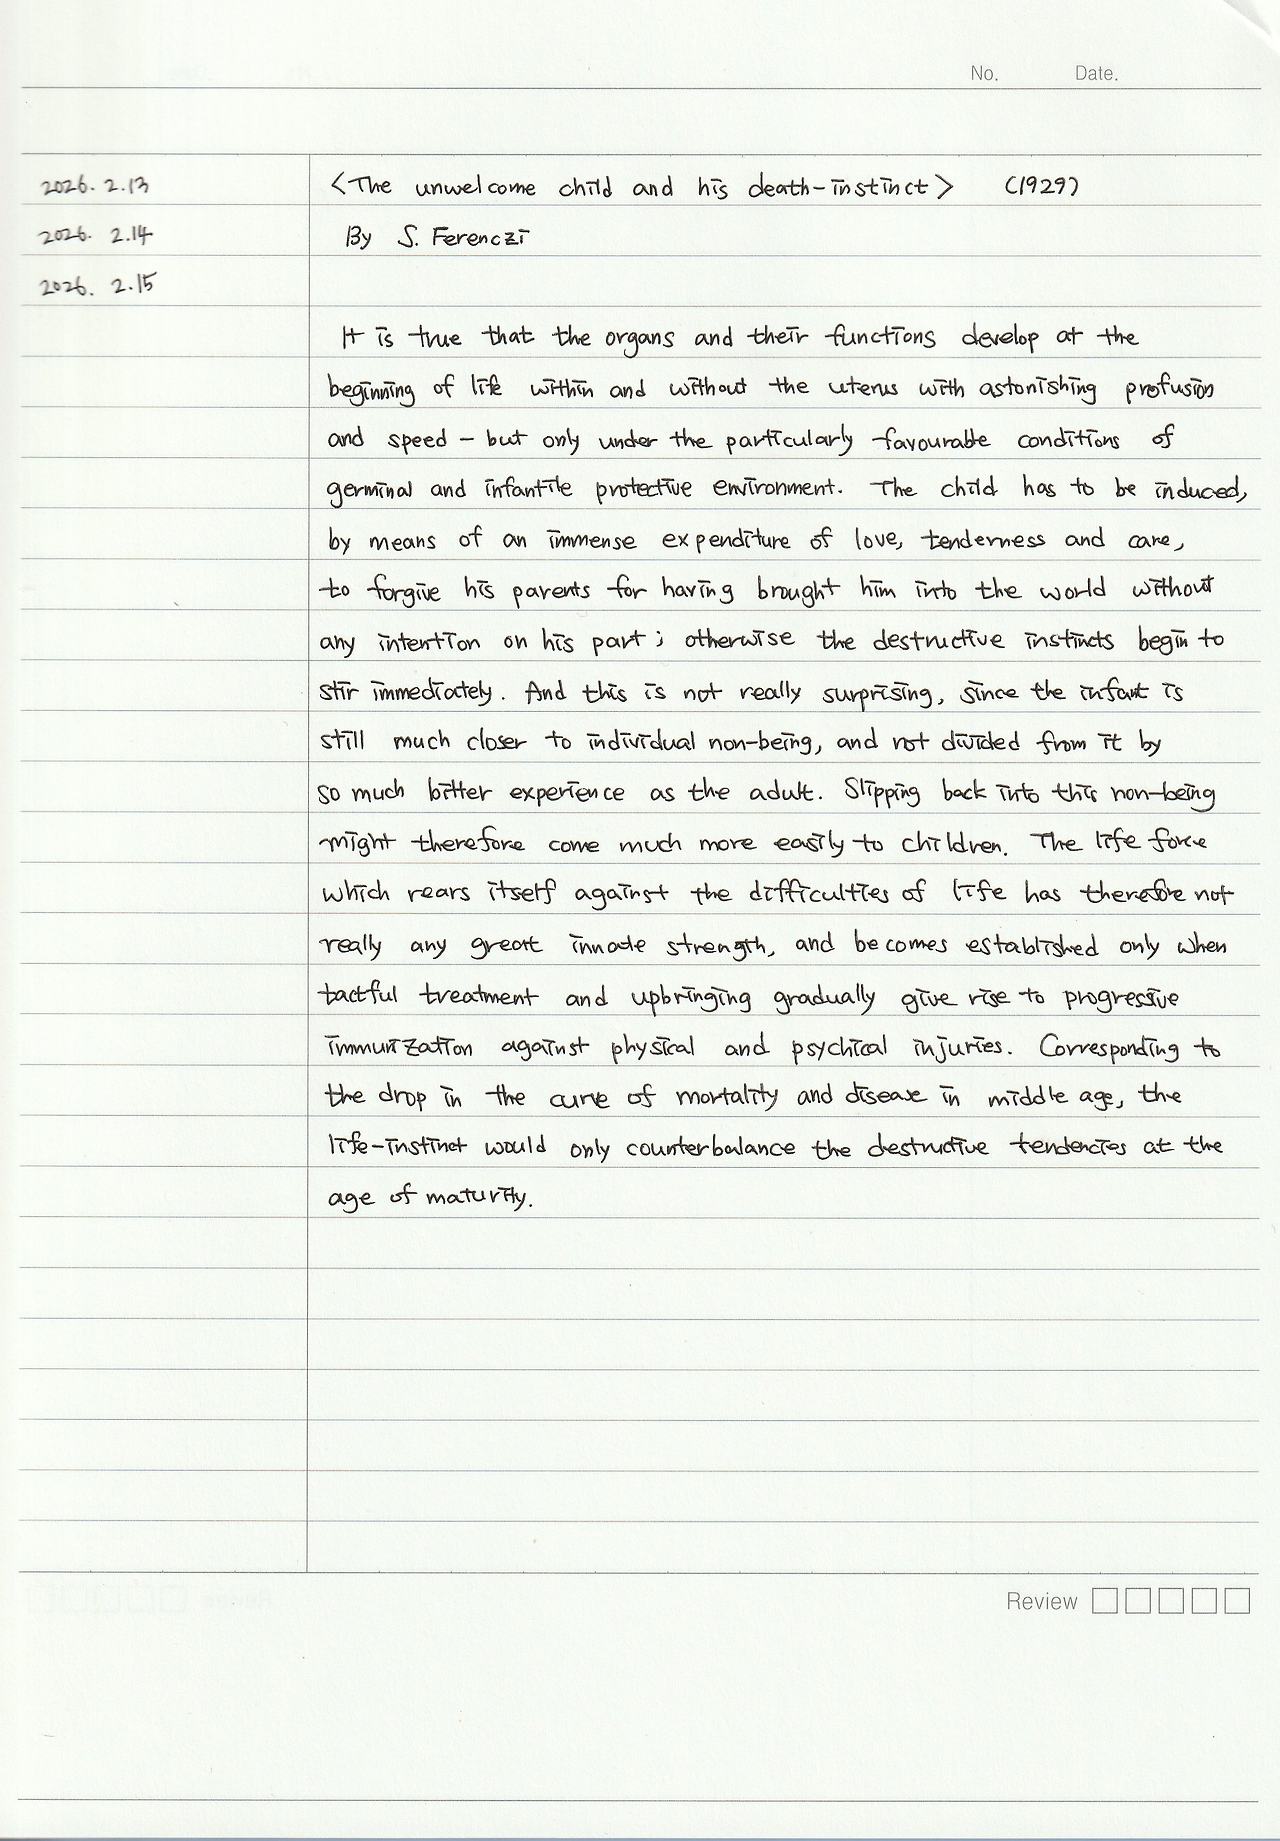 No. Date.
2026. 2.13 <The unwelcome child and his death-instinct> (1929)
2026. 2.14 By S. Ferenczi
2026. 2.15
It is true that the organs and their functions develop at the
beginning of life within and without the uterus with astonishing profusion
and speed - but only under the particularly favourable conditions of
germinal and infantile protective environment. The child has to be induced,
by means of an immense expenditure of love, tenderness and care,
to forgive his parents for having brought him into the world without
any intention on his part; otherwise the destructive instincts begin to
stir immediately. And this is not really surprising, since the infant is
still much closer to individual non-being, and not divided from it by
so much bitter experience as the adult. Slipping back into this non-being
might therefore come much more easily to children. The life force
which rears itself against the difficulties of life has therefore not
really any great innate strength, and becomes established only when
tactful treatment and upbringing gradually give rise to progressive
immunization against physical and psychical injuries. Corresponding to
the drop in the curve of mortality and disease in middle age, the
life-instinct would only counterbalance the destructive tendencies at the
age of maturity.
Review